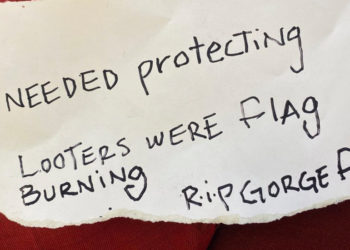 NEEDED protecting
LOOTERS WERE FlAg
BURNINg
R.i.P GORGE F